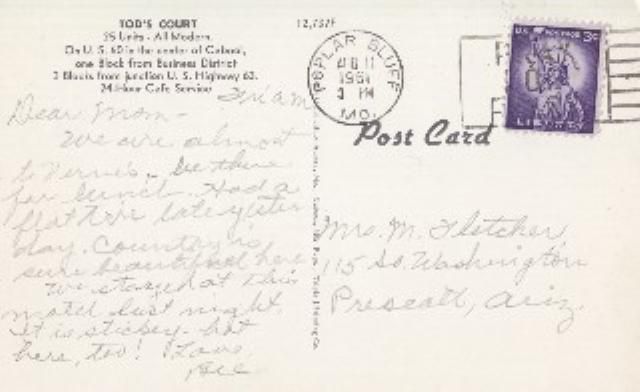 TOD'S COURT
25 Units - All Modern.
On U. S. 60 in the center of Cabool,
one Block from Business District
3 Blocks from junction U. S. Highway 63.
24-Hour Cafe Service
12,737F
POPLAR BLUFF
AUG 11
1961
3 PM
MO.
U.S. POSTAGE 3¢
LIBERTY
Post Card
Fri am
Dear Mom -
We are almost
to Vernie's. Be there
for lunch. Had a
flat tire late yester
day. Country is
sure beautiful here
We stayed at this
motel last night.
It is stickey-hot
here, too! Love,
Mrs. M. Fletcher
115 So. Washington
Prescott, Ariz.